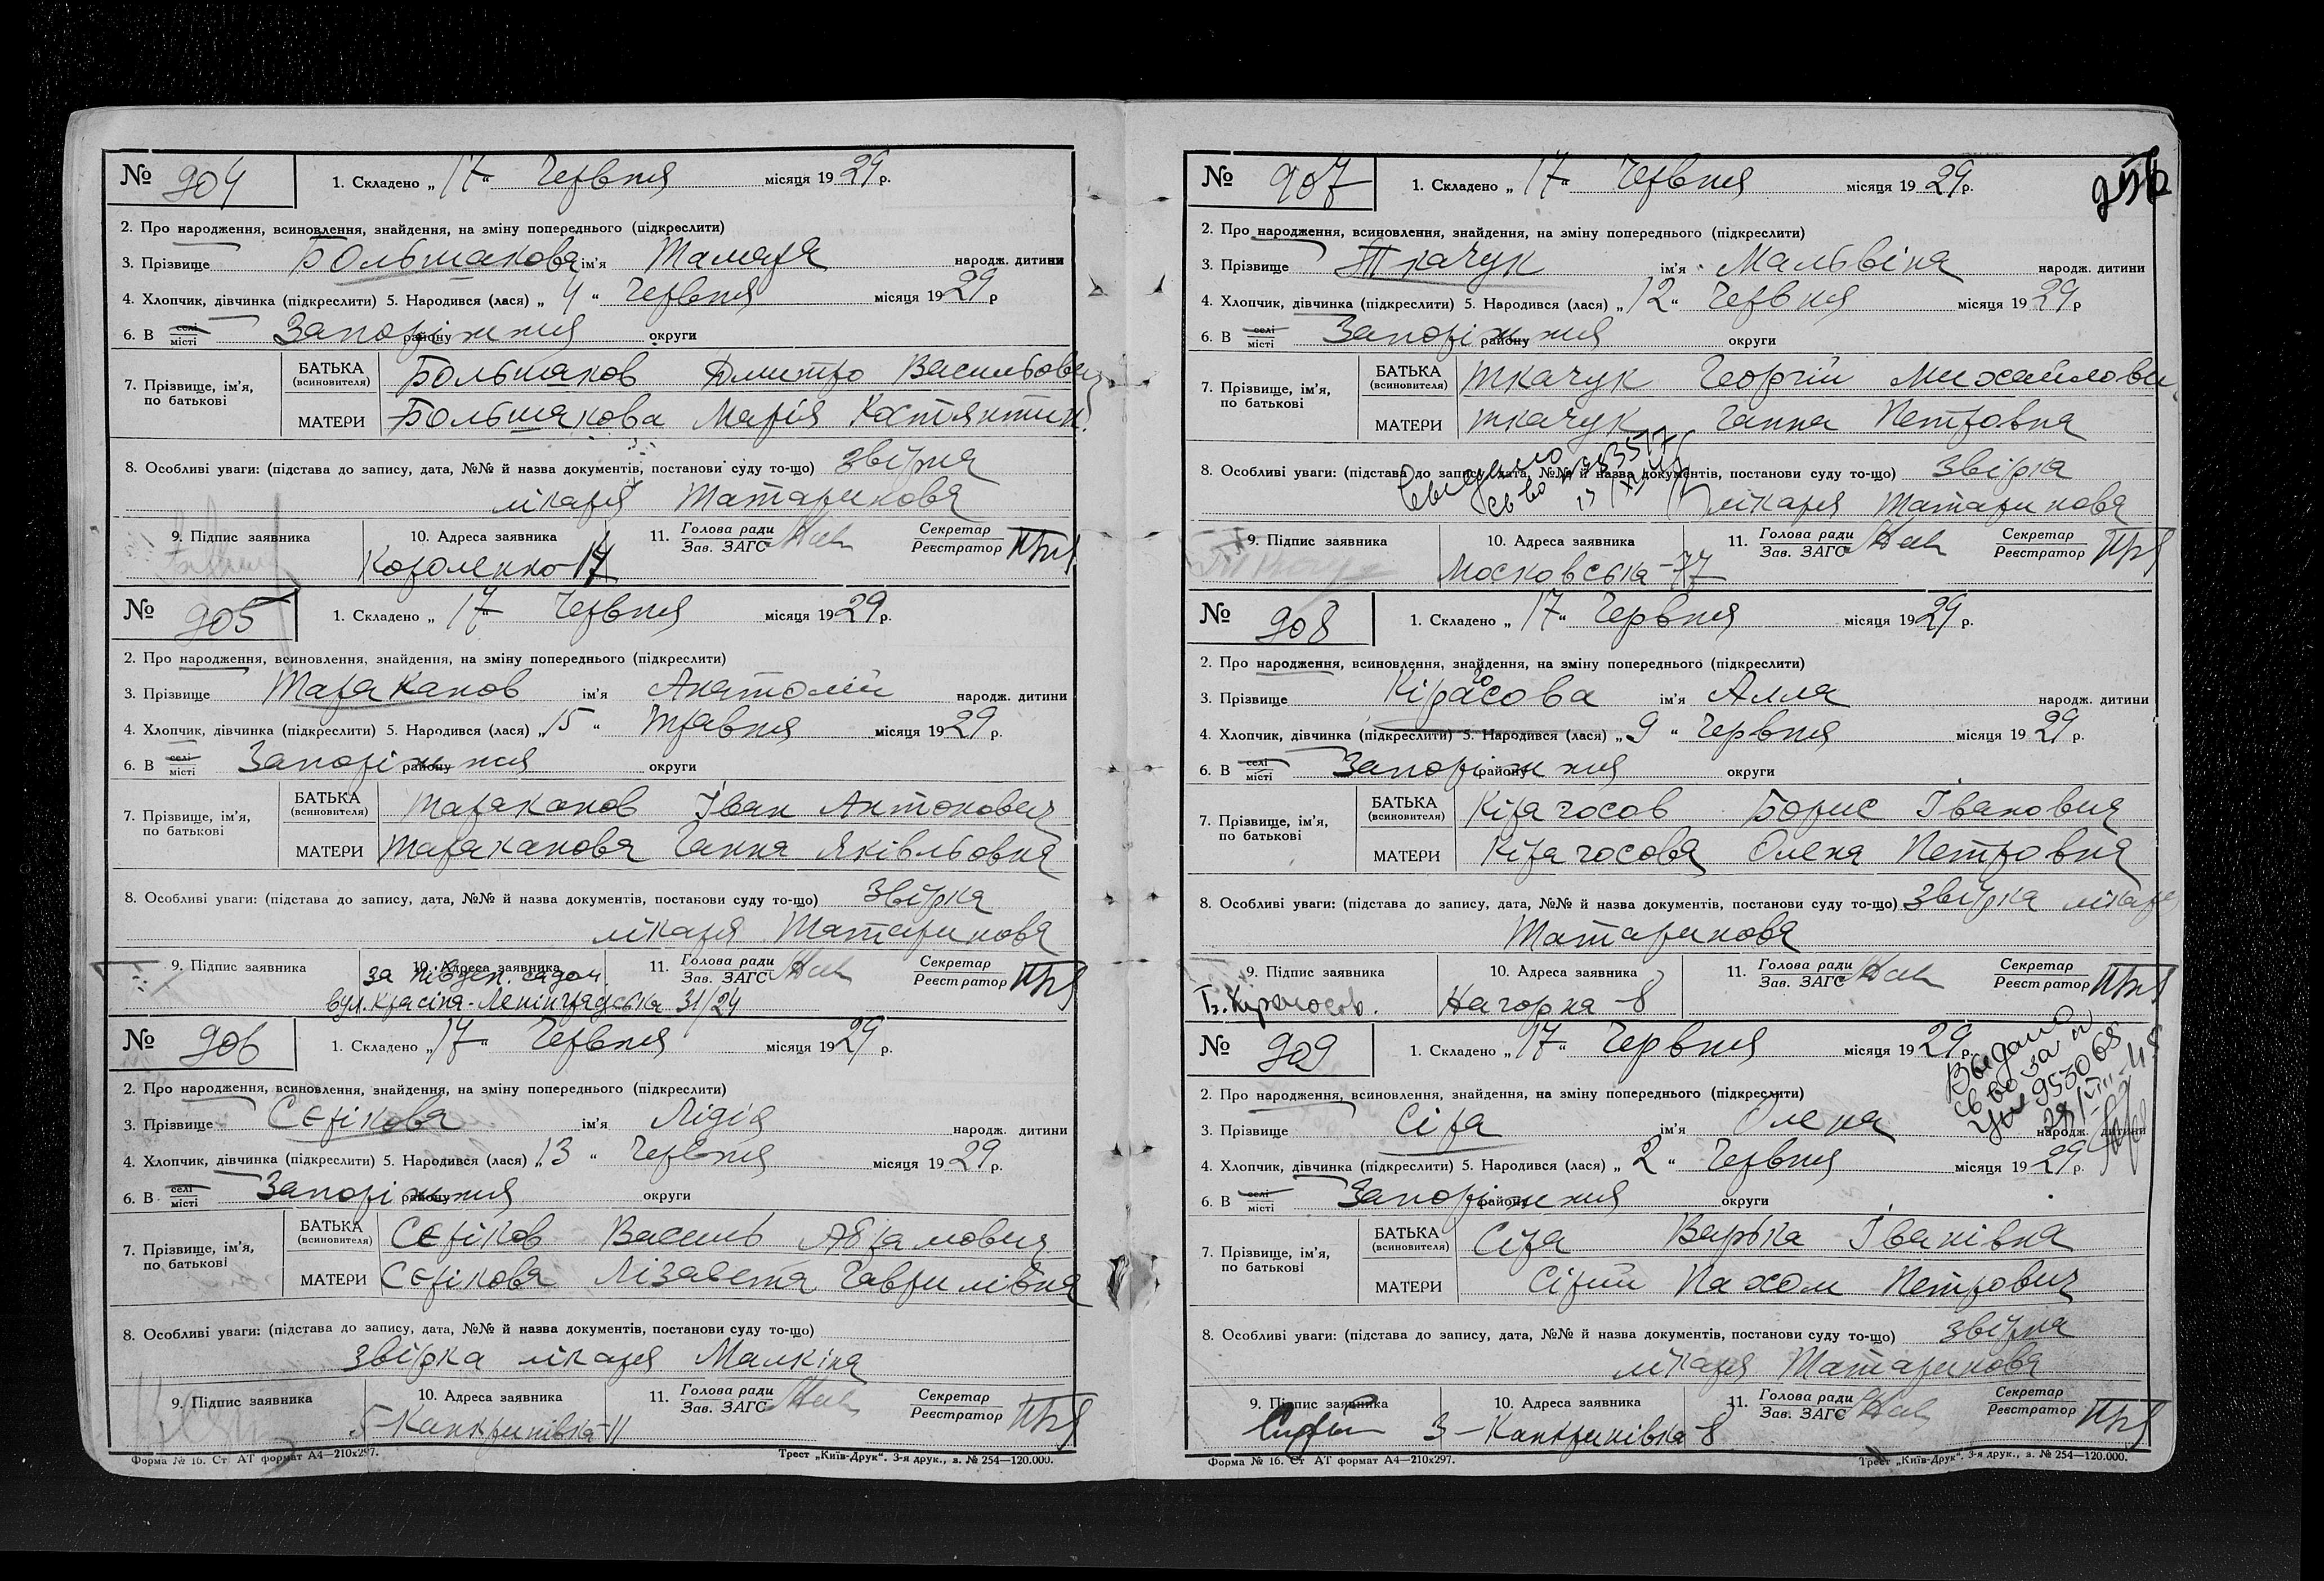 № 904 1. Складено „17“ Червня місяця 1929 р.
2. Про народження, всиновлення, знайдення, на зміну попереднього (підкреслити)
3. Прізвище Большакова ім'я Тамара народж. дитини
4. Хлопчик, дівчинка (підкреслити) 5. Народився (лася) „4“ Червня місяця 1929 р
6. В селі місті Запоріжжя району округи
7. Прізвище, ім'я, по батькові
БАТЬКА (всиновителя) Большаков Дмитро Васильович
МАТЕРИ Большакова Марія Костянтин.
8. Особливі уваги: (підстава до запису, дата, №№ й назва документів, постанови суду то-що) звірка
лікаря Татаринова
9. Підпис заявника 10. Адреса заявника 11. Голова ради Зав. ЗАГС Секретар Реєстратор
Короленко 17
№ 905 1. Складено „17“ Червня місяця 1929 р.
2. Про народження, всиновлення, знайдення, на зміну попереднього (підкреслити)
3. Прізвище Тараканов ім'я Анатолій народж. дитини
4. Хлопчик, дівчинка (підкреслити) 5. Народився (лася) „15“ Травня місяця 1929 р.
6. В селі місті Запоріжжя району округи
7. Прізвище, ім'я, по батькові
БАТЬКА (всиновителя) Тараканов Іван Антонович
МАТЕРИ Тараканова Ганна Яківльовна
8. Особливі уваги: (підстава до запису, дата, №№ й назва документів, постанови суду то-що) Звірка
лікаря Татаринова
9. Підпис заявника 10. Адреса заявника 11. Голова ради Зав. ЗАГС Секретар Реєстратор
за півден. садом
вул. Красіна-Ленінградська 31/24
№ 906 1. Складено „17“ Червня місяця 1929 р.
2. Про народження, всиновлення, знайдення, на зміну попереднього (підкреслити)
3. Прізвище Сєрікова ім'я Лідія народж. дитини
4. Хлопчик, дівчинка (підкреслити) 5. Народився (лася) „13“ Червня місяця 1929 р.
6. В селі місті Запоріжжя району округи
7. Прізвище, ім'я, по батькові
БАТЬКА (всиновителя) Сєріков Василь Абрамович
МАТЕРИ Сєрікова Лізавета Гаврилівна
8. Особливі уваги: (підстава до запису, дата, №№ й назва документів, постанови суду то-що)
звірка лікаря Малкіна
9. Підпис заявника 10. Адреса заявника 11. Голова ради Зав. ЗАГС Секретар Реєстратор
5-Канкринівка-11
Форма № 16. Ст АТ формат А4—210х297. Трест „Київ-Друк“. З-я друк., з. № 254—120.000.
№ 907 1. Складено „17“ Червня місяця 1929 р.
2. Про народження, всиновлення, знайдення, на зміну попереднього (підкреслити)
3. Прізвище Ткачук ім'я Мальвіна народж. дитини
4. Хлопчик, дівчинка (підкреслити) 5. Народився (лася) „12“ Червня місяця 1929 р
6. В селі місті Запоріжжя району округи
7. Прізвище, ім'я, по батькові
БАТЬКА (всиновителя) Ткачук Георгій Михайлови
МАТЕРИ Ткачук Ганна Петровна
8. Особливі уваги: (підстава до запису, дата, №№ й назва документів, постанови суду то-що) Звірка
лікаря Татаринова
9. Підпис заявника 10. Адреса заявника 11. Голова ради Зав. ЗАГС Секретар Реєстратор
Московська-77
№ 908 1. Складено „17“ Червня місяця 1929 р.
2. Про народження, всиновлення, знайдення, на зміну попереднього (підкреслити)
3. Прізвище Кірагосова ім'я Алла народж. дитини
4. Хлопчик, дівчинка (підкреслити) 5. Народився (лася) „9“ Червня місяця 1929 р.
6. В селі місті Запоріжжя району округи
7. Прізвище, ім'я, по батькові
БАТЬКА (всиновителя) Кірагосов Борис Іванович
МАТЕРИ Кірагосова Олена Петровна
8. Особливі уваги: (підстава до запису, дата, №№ й назва документів, постанови суду то-що) Звірка лікаря
Татаринова
9. Підпис заявника 10. Адреса заявника 11. Голова ради Зав. ЗАГС Секретар Реєстратор
Нагорна-8
№ 909 1. Складено „17“ Червня місяця 1929 р.
2. Про народження, всиновлення, знайдення, на зміну попереднього (підкреслити)
3. Прізвище Сіра ім'я Олена народж. дитини
4. Хлопчик, дівчинка (підкреслити) 5. Народився (лася) „2“ Червня місяця 1929 р.
6. В селі місті Запоріжжя району округи
7. Прізвище, ім'я, по батькові
БАТЬКА (всиновителя) Сіра Варька Іванівна
МАТЕРИ Сірий Пахом Петрович
8. Особливі уваги: (підстава до запису, дата, №№ й назва документів, постанови суду то-що) звірка
лікаря Татаринова
9. Підпис заявника 10. Адреса заявника 11. Голова ради Зав. ЗАГС Секретар Реєстратор
3-Канкринівка-8
Форма № 16. Ст АТ формат А4—210х297. Трест „Київ-Друк“. З-я друк., з. № 254—120.000.